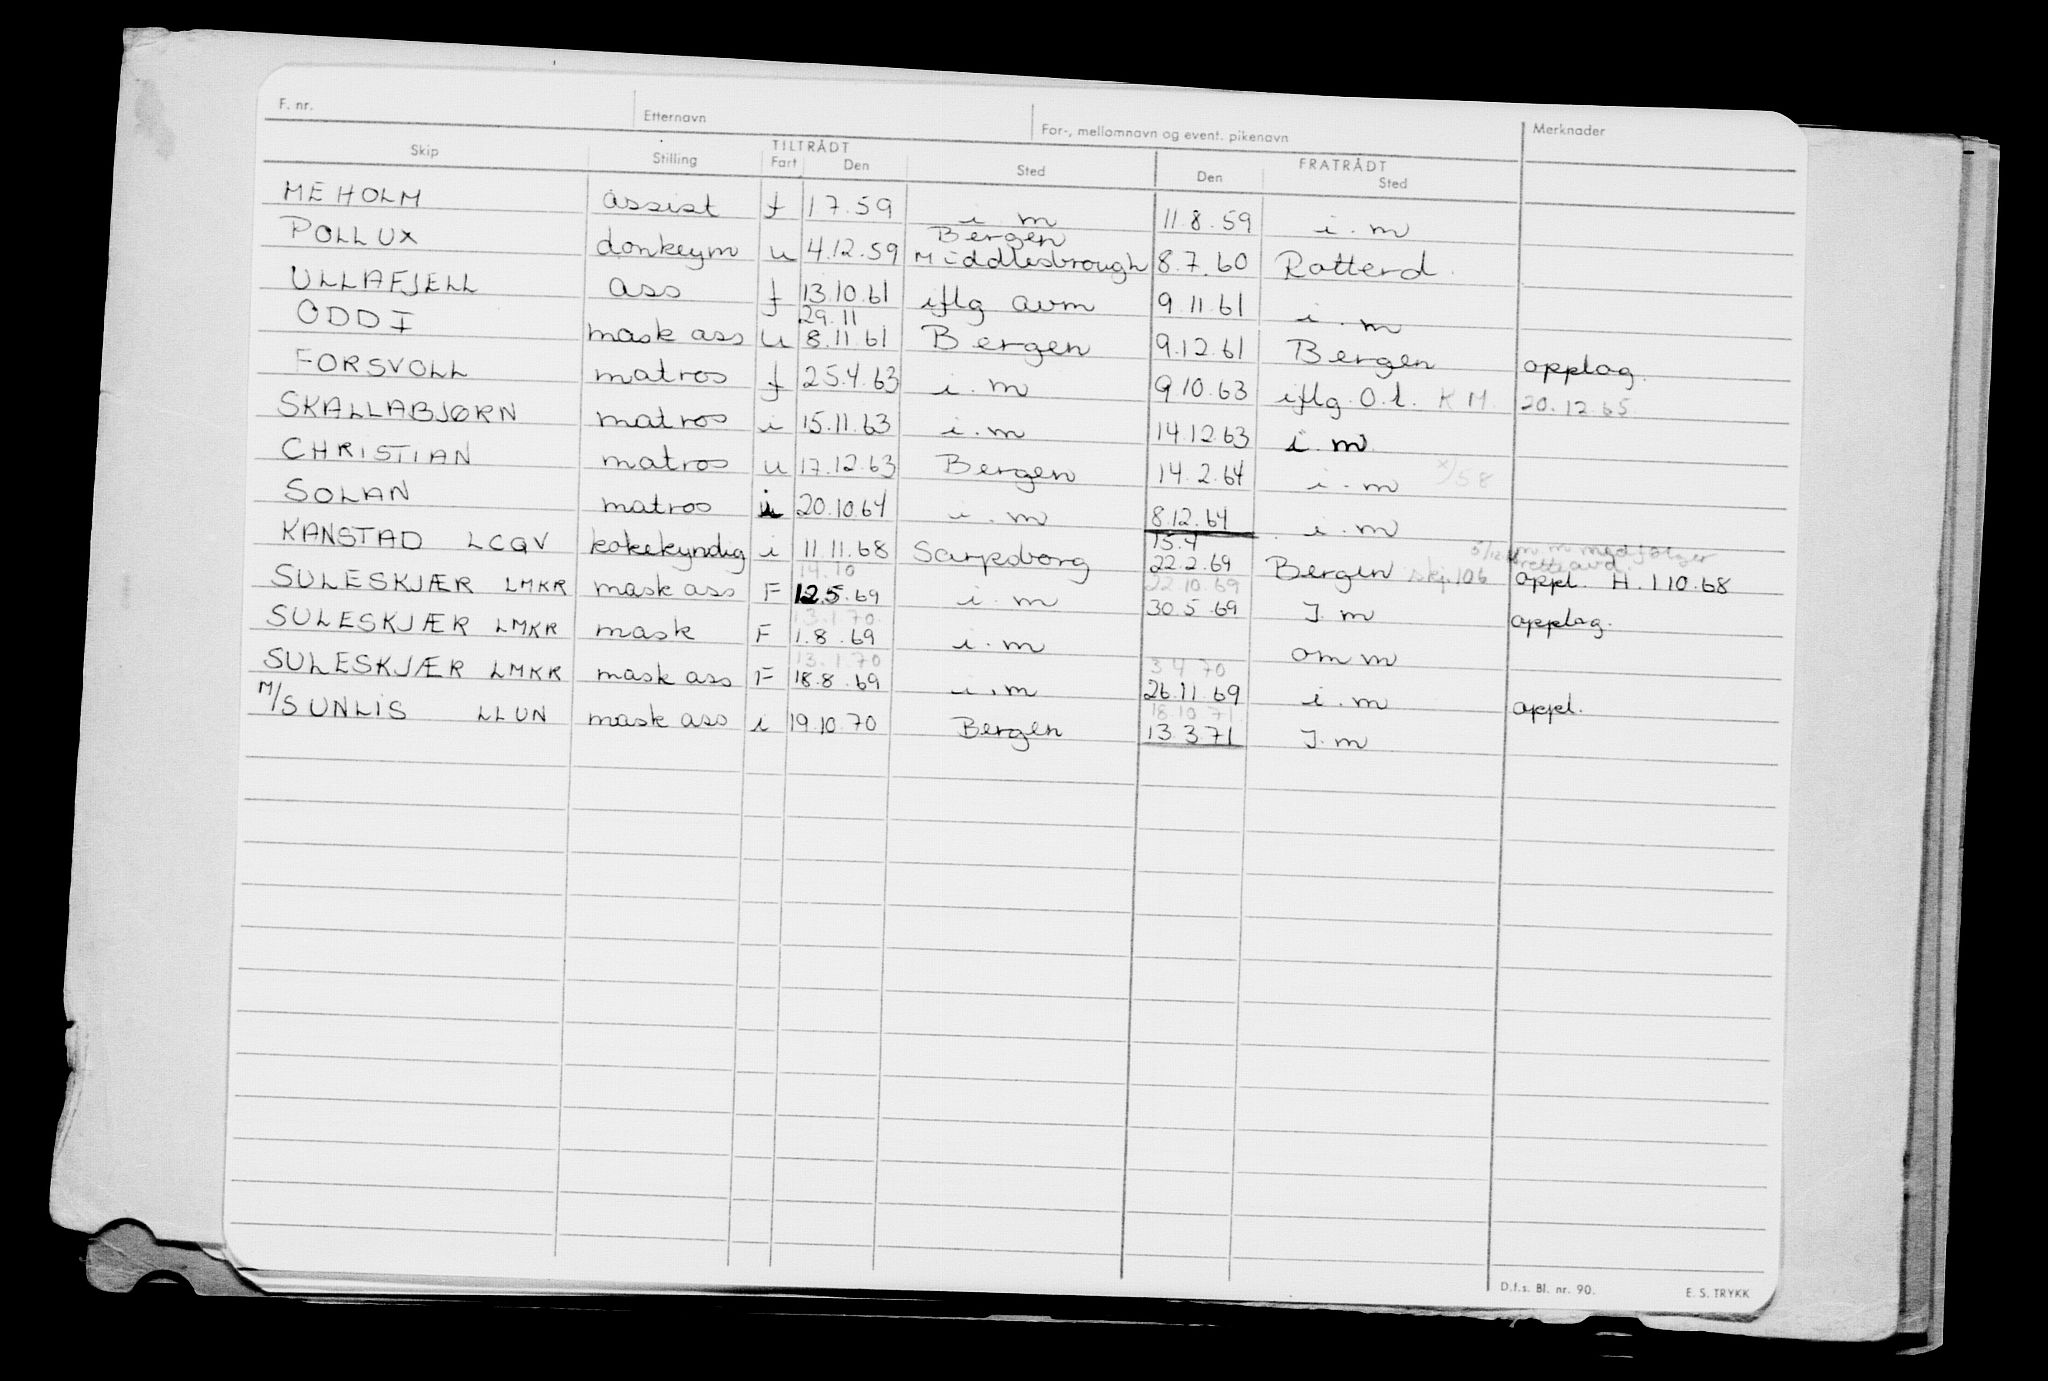 F. nr. Etternavn For-, mellomnavn og event. pikenavn Merknader
Skip Stilling TILTRÅDT Fart Den Sted FRATRÅDT Den Sted
MEHOLM assist f 1 7. 59 i. m 11. 8. 59 i. m
Bergen
POLLUX donkeym u 4.12. 59 Middlesbrough 8. 7. 60 Rotterd.
ULLAFJELL ass f 13.10.61 iflg avm 9. 11. 61 i. m
29. 11
ODD I mask ass u 8.11.61 Bergen 9.12.61 Bergen opplag.
FORSVOLL matros f 25.4.63 i. m 9 10.63 iflg. O.l. K M. 20.12.65.
SKALLABJØRN matros i 15.11.63 i. m 14.12.63 i. m
CHRISTIAN matros u 17.12.63 Bergen 14. 2. 64 i. m x/58
SOLAN matros i 20.10.64 i. m 8.12.64 i. m
15.4
KANSTAD LCQV kokekyndig i 11.11.68 Sarpsborg 22.2.69 Bergen oppl. H. 1 10.68
14.10 22.10.69
SULESKJÆR LMKR mask ass F 12.5.69 i. m 30.5.69 I. m opplag.
13.1 70.
SULESKJÆR LMKR mask F 1.8.69 i. m om m
13. 1. 70 3 4 70
SULESKJÆR LMKR mask ass F 18.8.69 i. m 26.11.69 i. m oppl.
18 10 71
M/S UNLIS LLUN mask ass i 19.10.70 Bergen 13 3 71 I. m
D.f.s. Bl. nr. 90. E. S. TRYKK